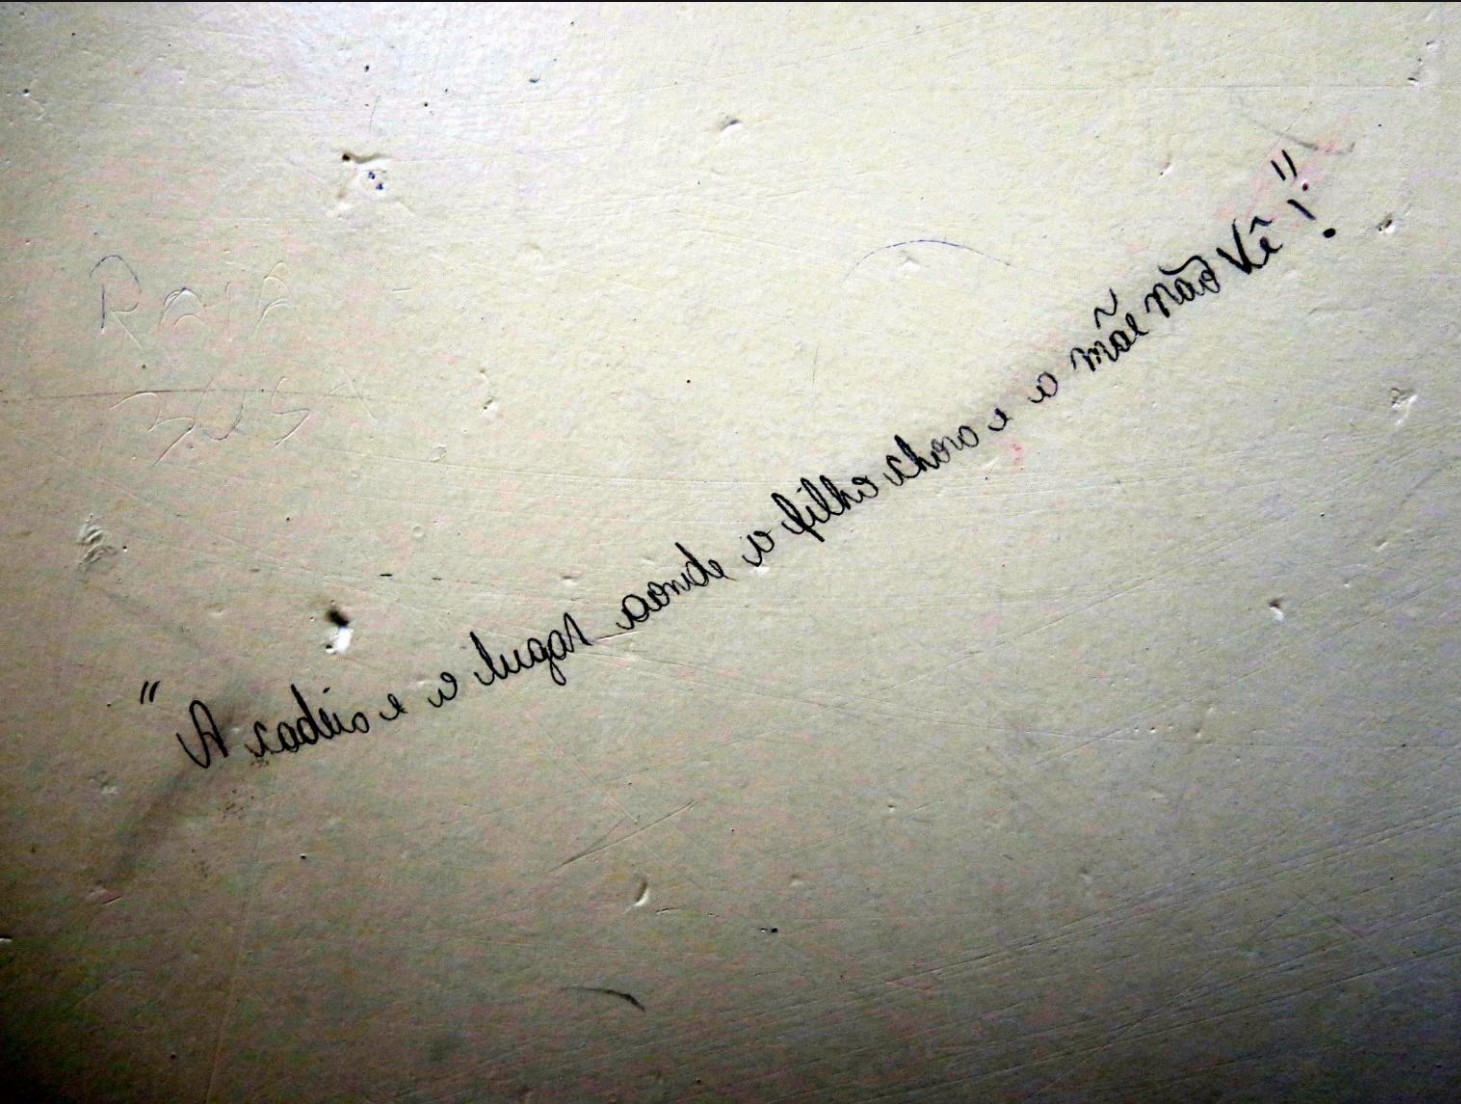 "A cadeia e o lugar aonde o filho chora e a mãe não Vê!"